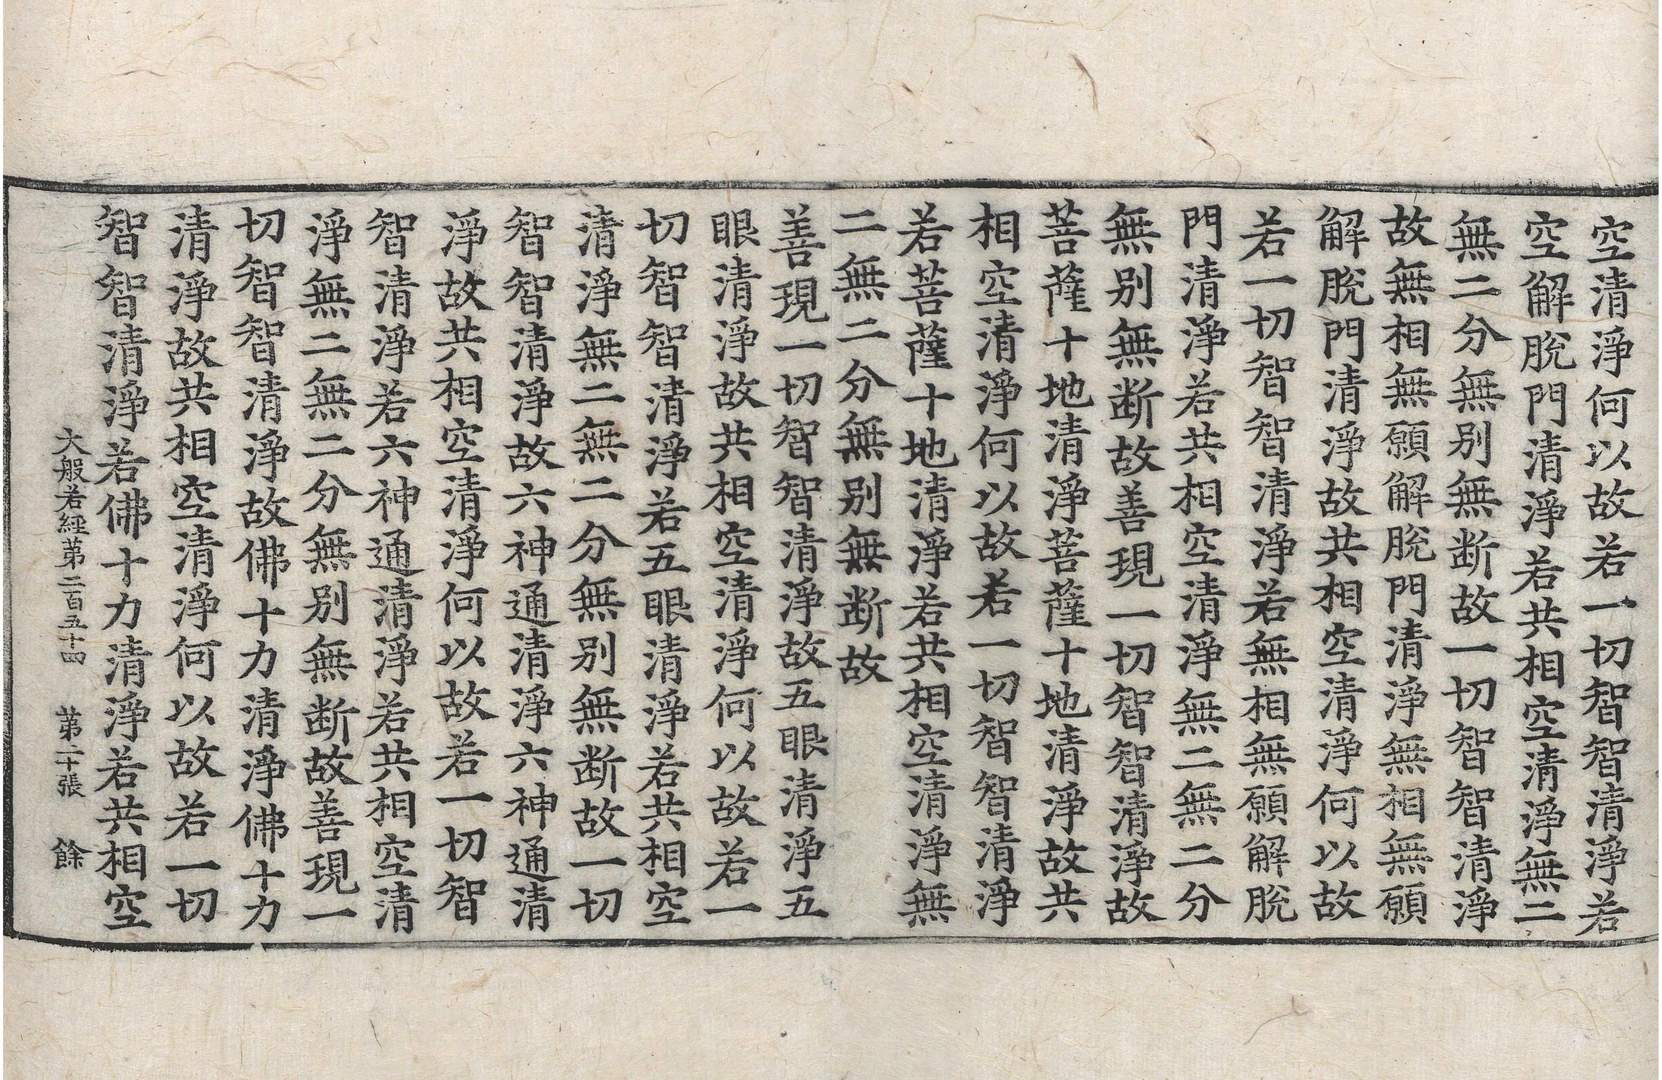 空清淨何以故若一切智智清淨若
空解脫門清淨若共相空清淨無二
無二分無別無断故一切智智清淨
故無相無願解脫門清淨無相無願
解脫門清淨故共相空清淨何以故
若一切智智清淨若無相無願解脫
門清淨若共相空清淨無二無二分
無别無断故善現一切智智清淨故
菩薩十地清淨菩薩十地清淨故共
相空清淨何以故若一切智智清淨
若菩薩十地清淨若共相空清淨無
二無二分無别無断故
善現一切智智清淨故五眼清淨五
眼清淨故共相空清淨何以故若一
切智智清淨若五眼清淨若共相空
清淨無二無二分無別無断故一切
智智清淨故六神通清淨六神通清
淨故共相空清淨何以故若一切智
智清淨若六神通清淨若共相空清
淨無二無二分無别無断故善現一
切智智清淨故佛十力清淨佛十力
清淨故共相空清淨何以故若一切
智智清淨若佛十力清淨若共相空
大般若經第二百五十四 第二十張 餘